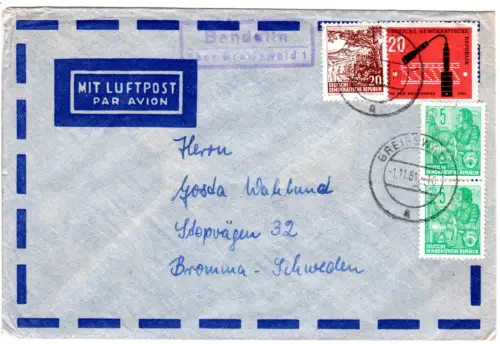 Bandelin
über Greifswald 1
MIT LUFTPOST
PAR AVION
20
DEUTSCHE
DEMOKRATISCHE REPUBLIK
20
DEUTSCHE DEMOKRATISCHE
REPUBLIK
GREIFSWALD
-1.11.61
a
a
5
DEUTSCHE
DEMOKRATISCHE
REPUBLIK
5
DEUTSCHE
DEMOKRATISCHE
REPUBLIK
Herrn
Gösta Wahlund
Stopvägen 32
Bromma - Schweden